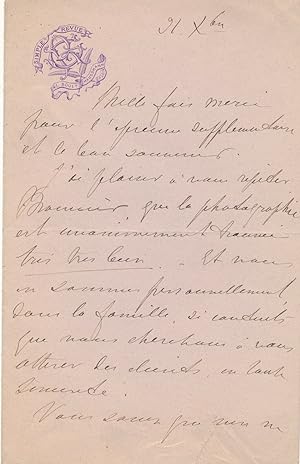 SIMPLE REVUE
21 Xbre
Mille fois merci
pour l'épreuve supplémentaire
et le bon souvenir.
J'ai plaisir à vous répéter
Monsieur que la photographie
est unanimement trouvée
très très bien. Et nous
en sommes personnellement
dans la famille, si contents
que nous cherchons à vous
attirer des clients, en toute
sincérité.
Vous savez que rien ne